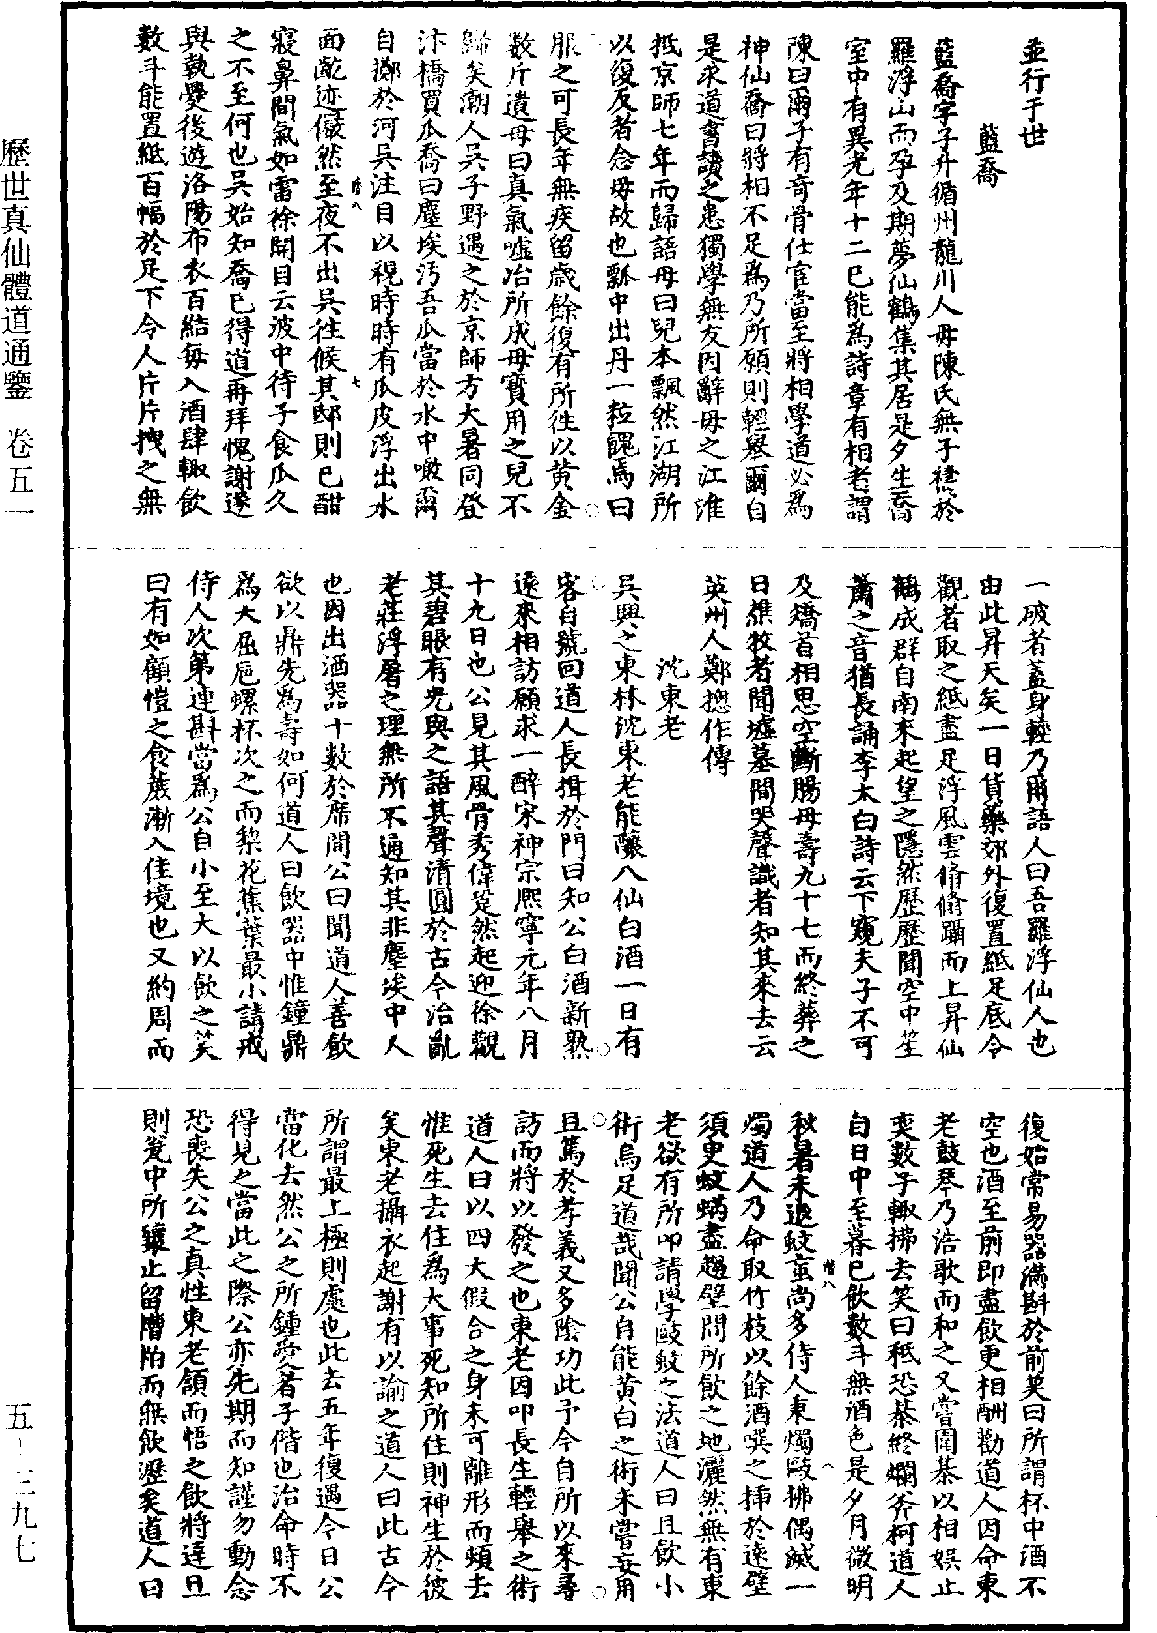 並行于世
藍喬
藍喬字子升循州龍川人母陳氏無子禱於
羅浮山而孕及期夢仙鶴集其居是夕生喬
室中有異光年十二已能為詩章有相者謂
陳曰爾子有奇骨仕宦當至將相學道必為
神仙喬曰將相不足為乃所願則輕舉爾自
是求道書讀之患獨學無友因辭母之江淮
抵京師七年而歸語母曰兒本飄然江湖所
以復反者念母故也瓢中出丹一粒餽焉曰
服之可長年無疾留歲餘復有所往以黃金
數斤遺母曰真氣噓冶所成母寶用之兒不
歸矣潮人吳子野遇之於京師方大暑同登
汴橋買瓜喬曰塵埃汚吾瓜當於水中噉爾
自擲於河吳注目以視時時有瓜皮浮出水
面齕迹儼然至夜不出吳往候其邸則已酣
寢鼻間氣如雷徐開目云波中待子食瓜久
之不至何也吳始知喬已得道再拜愧謝遂
與執爨後遊洛陽布衣百結每入酒肆輙飲
數斗能置紙百幅於足下令人片片拽之無
一破者蓋身輕乃爾語人曰吾羅浮仙人也
由此昇天矣一日貨藥郊外復置紙足底令
觀者取之紙盡足浮風雲翛翛躡而上昇仙
鶴成群自南來起望之隱然歷歷聞空中笙
簫之音猶長誦李太白詩云下窺夫子不可
及矯首相思空斷腸母壽九十七而終葬之
日樵牧者聞墟墓間哭聲識者知其來去云
英州人鄭揔作傳
沈東老
吳興之東林沈東老能釀八仙白酒一日有
客自號回道人長揖於門曰知公白酒新熟
遠來相訪願求一醉宋神宗熈寧元年八月
十九日也公見其風骨秀偉跫然起迎徐觀
其碧眼有光與之語其聲清圓於古今治亂
老莊浮屠之理無所不通知其非塵埃中人
也因出酒器十數於席間公曰聞道人善飲
欲以鼎先為壽如何道人曰飲器中惟鐘鼎
為大屈巵螺杯次之而梨花蕉葉最小請戒
侍人次第速斟當為公自小至大以飲之笑
曰有如顧愷之食蔗漸入佳境也又約周而
復始常易器滿斟於前笑曰所謂杯中酒不
空也酒至前即盡飲更相酬勸道人因命東
老鼓琴乃浩歌而和之又嘗圍棊以相娛止
奕數子輙拂去笑曰秪恐棊終爛斧柯道人
自日中至暮已飲數斗無酒色是夕月微明
秋暑未退蚊䖟尚多侍人秉燭毆拂偶滅一
燭道人乃命取竹枝以餘酒噀之插於遠壁
須臾蚊蚋盡趨壁間所飲之地灑然無有東
老欲有所叩請學毆蚊之法道人曰且飲小
術烏足道哉聞公自能黃白之術未嘗妄用
且篤於孝義又多陰功此予今自所以來尋
訪而將以發之也東老因叩長生輕舉之術
道人曰以四大假合之身未可離形而頓去
惟死生去住為大事死知所住則神生於彼
矣東老攝衣起謝有以諭之道人曰此古今
所謂最上極則處也此去五年復遇今日公
當化去然公之所鍾愛者子偕也治命時不
得見之當此之際公亦先期而知謹勿動念
恐喪失公之真性東老頷而悟之飲將達旦
則甕中所釀止留糟粕而無飲瀝矣道人曰
歷世真仙體道通鑒 卷五一
五-三九七